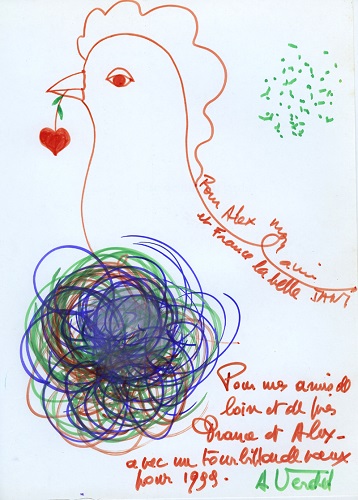 Pour Alex mon ami
et France la belle
Pour mes amis de
loin et de près
et Alex
avec un tourbillon de vœux
pour 1999.
A. Verdet